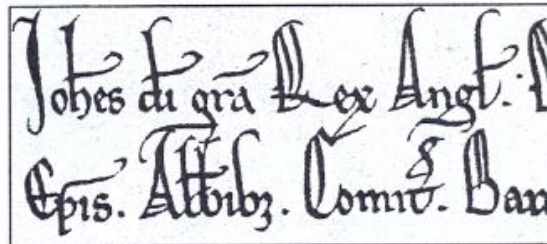 Johes di gra Rex Angl.
Epis. Abbibz. Comit. Bar